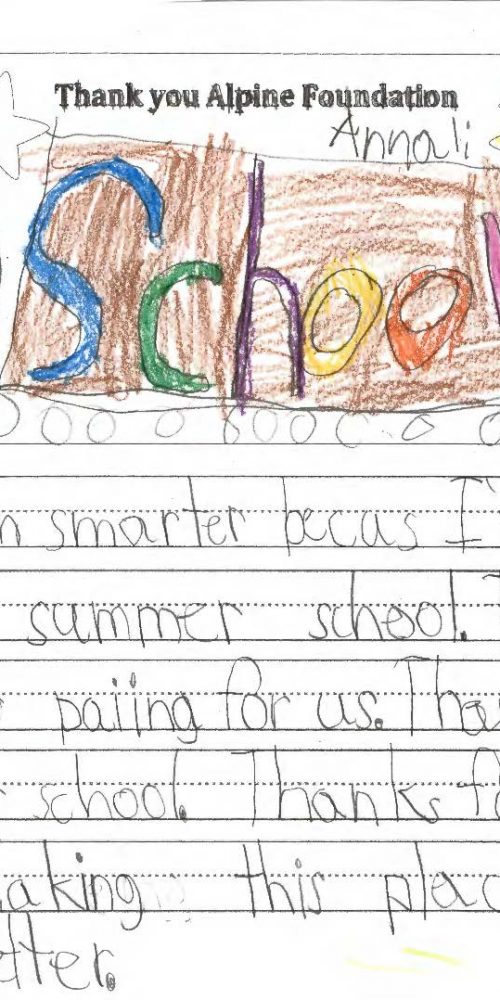 Thank you Alpine Foundation
Annali
School
smarter becus I
summer school.
paiing for us. Tha
school. Thanks f
aking this plac
tter.